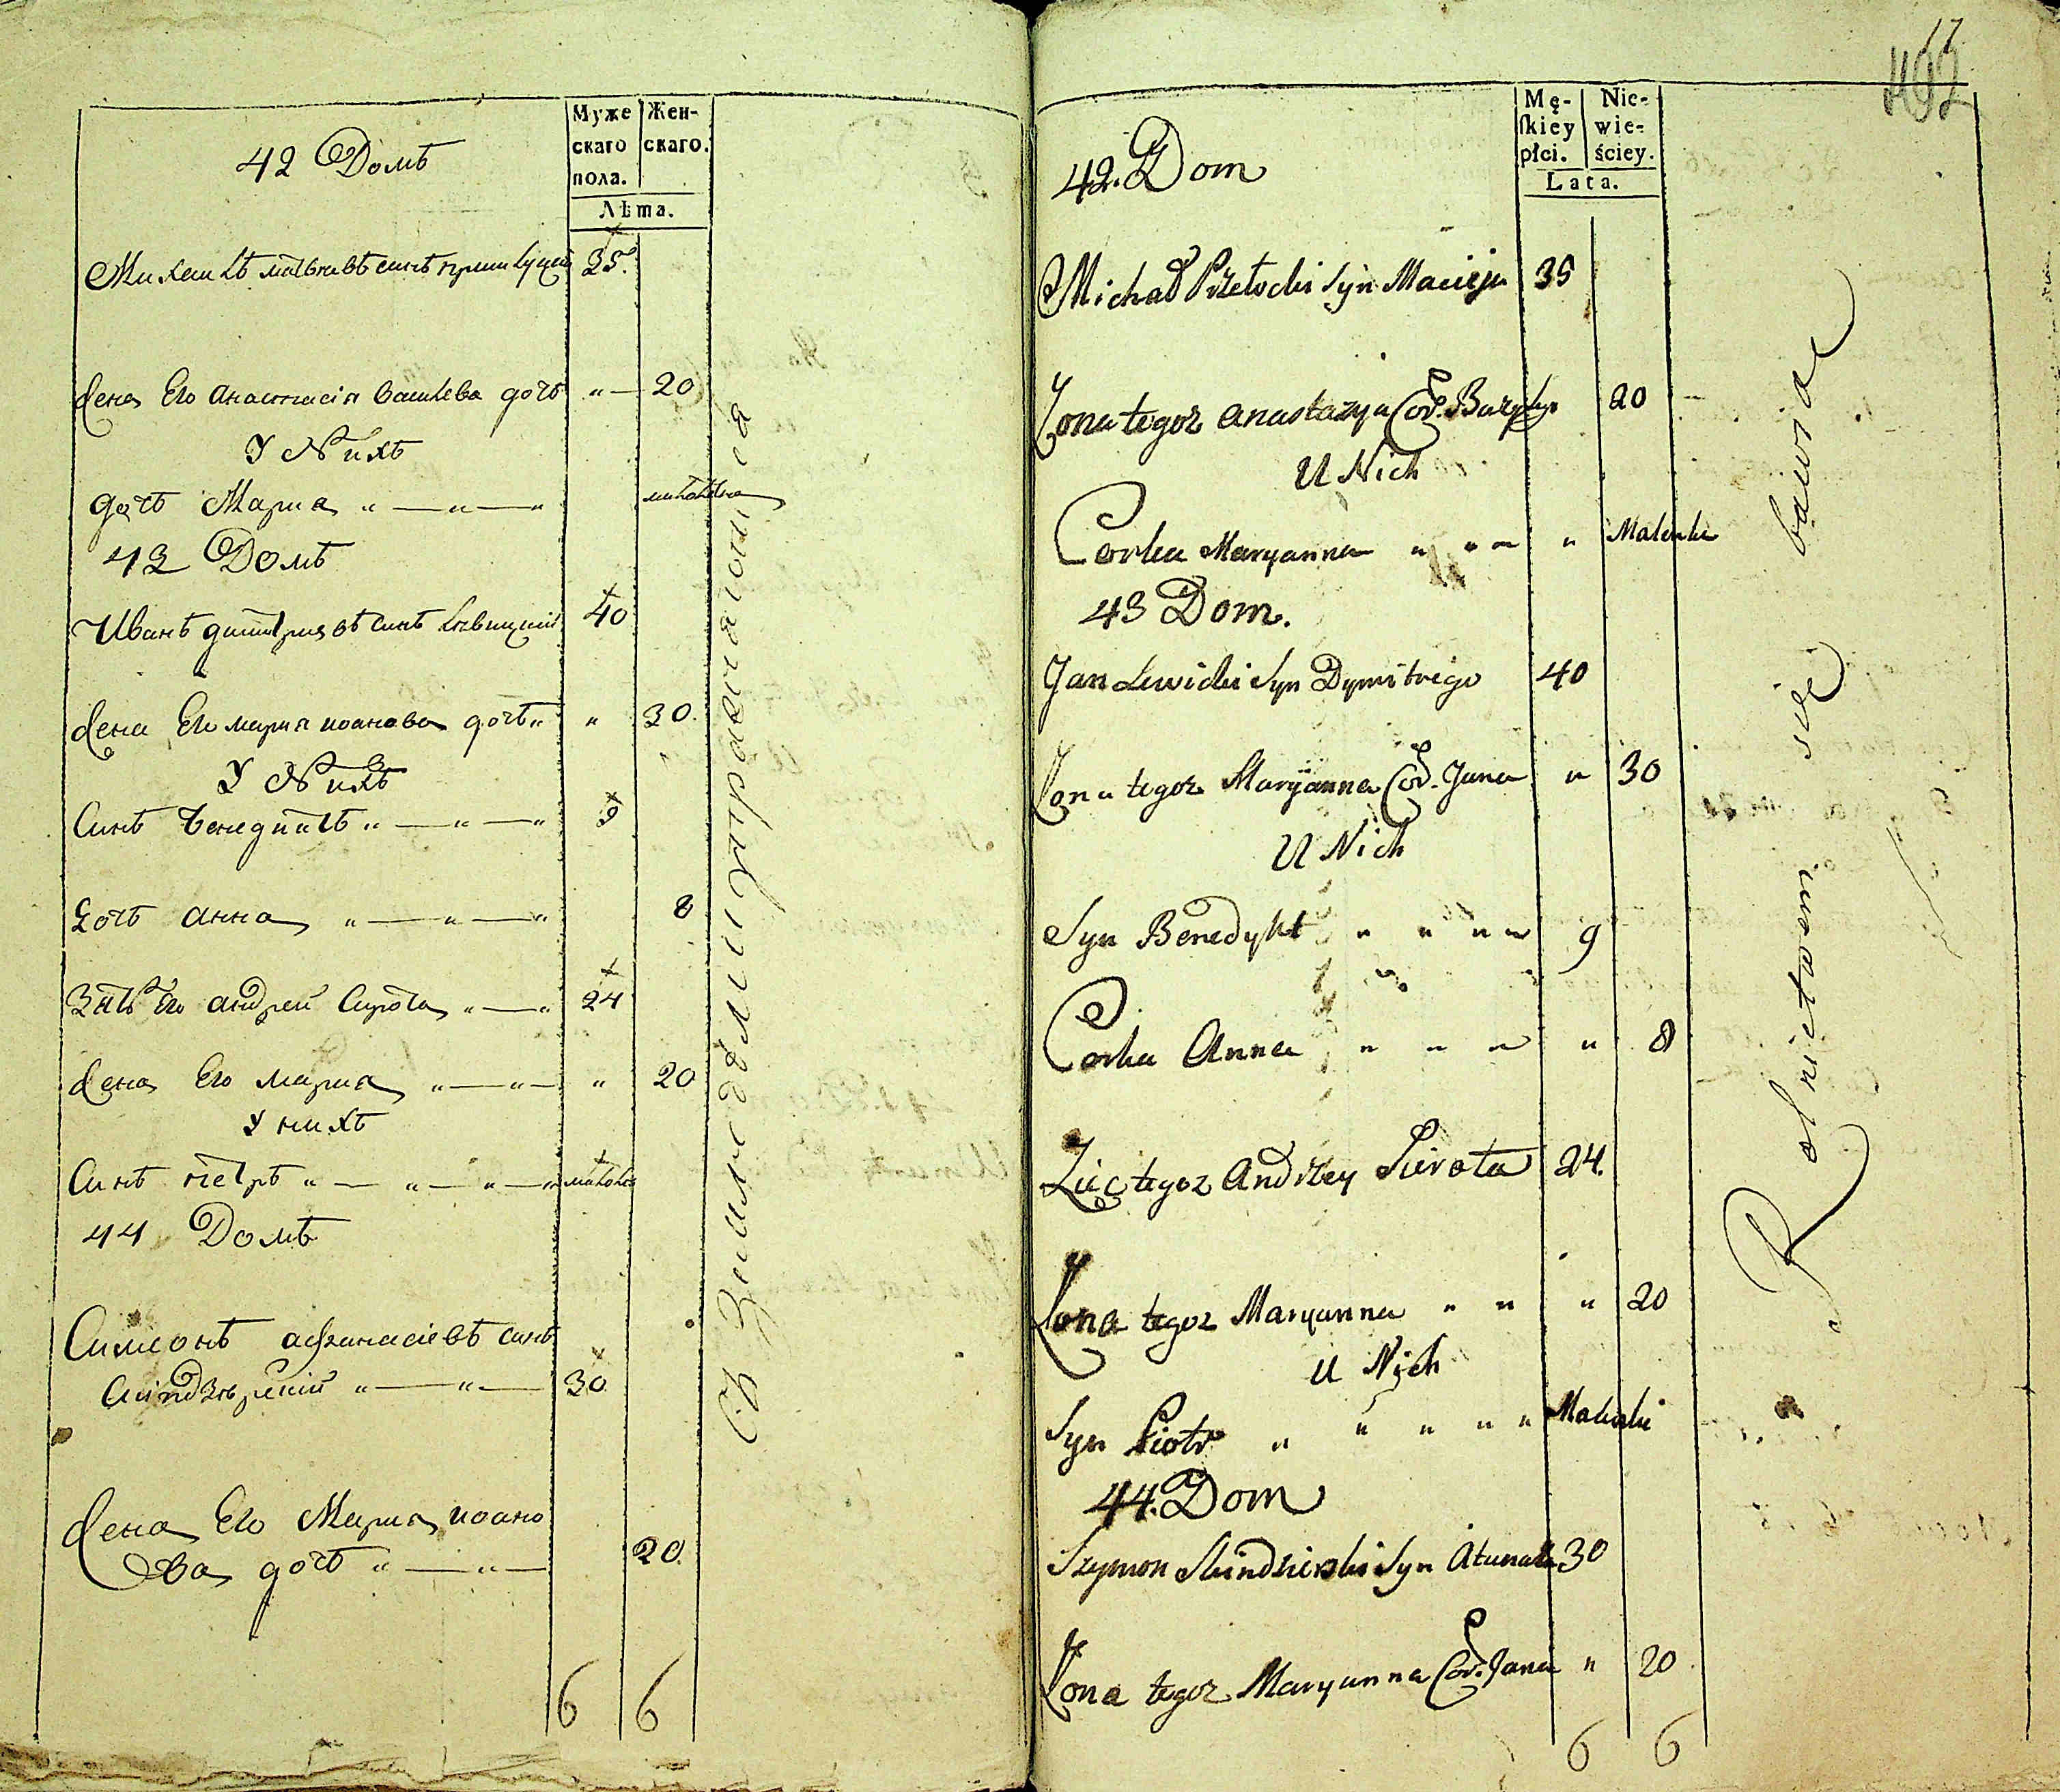 Муже
скаго
пола.
Жен-
скаго.
Лѣта.
42 Домъ
35.
Жена Его анастасія василева дочь " — 20
У Нихъ
дочь Мариа " — " — "
43 Домъ
Иванъ димитриевъ синъ 40
Жена Его мариа иоанова дочь " " 30.
У Нихъ
Синъ Бенедиктъ " — " — " 9
Дочь анна " — " — " 8
Зять Его андрей Сирота " — " 24
Жена Его мариа " — " — " 20
У нихъ
Синъ петръ " — " — " — "
44 Домъ
Симеонъ афанасіевъ синъ
" — " — 30
Жена Его Мариа иоано
ва дочь " — " — 20.
6 6
Съ Земледѣлия
17
492
Mę-
ſkiey
płci.
Nie-
wie-
ściey.
Lata.
42. Dom
Michał Przetocki Syn Macieja 35
Żona tegoż Anastazya Cór. Bazylego 20
U Nich
Corka Maryanna " " " " Malenka
43 Dom.
Jan Lewicki Syn Dymitrego 40
Żona tegoż Maryanna Cór. Jana " 30
U Nich
Syn Benedykt " " " " 9
Corka Anna " " " " 8
Zięć tegoż Andrzey Sierota 24.
Żona tegoż Maryanna " " " 20
U Nich
Syn Piotr " " " " " Malenki
44. Dom
Szymon Skindzierski Syn Atanaze 30
Żona tegoż Maryanna Cór. Jana " 20
6 6
Rolnictwem się bawią